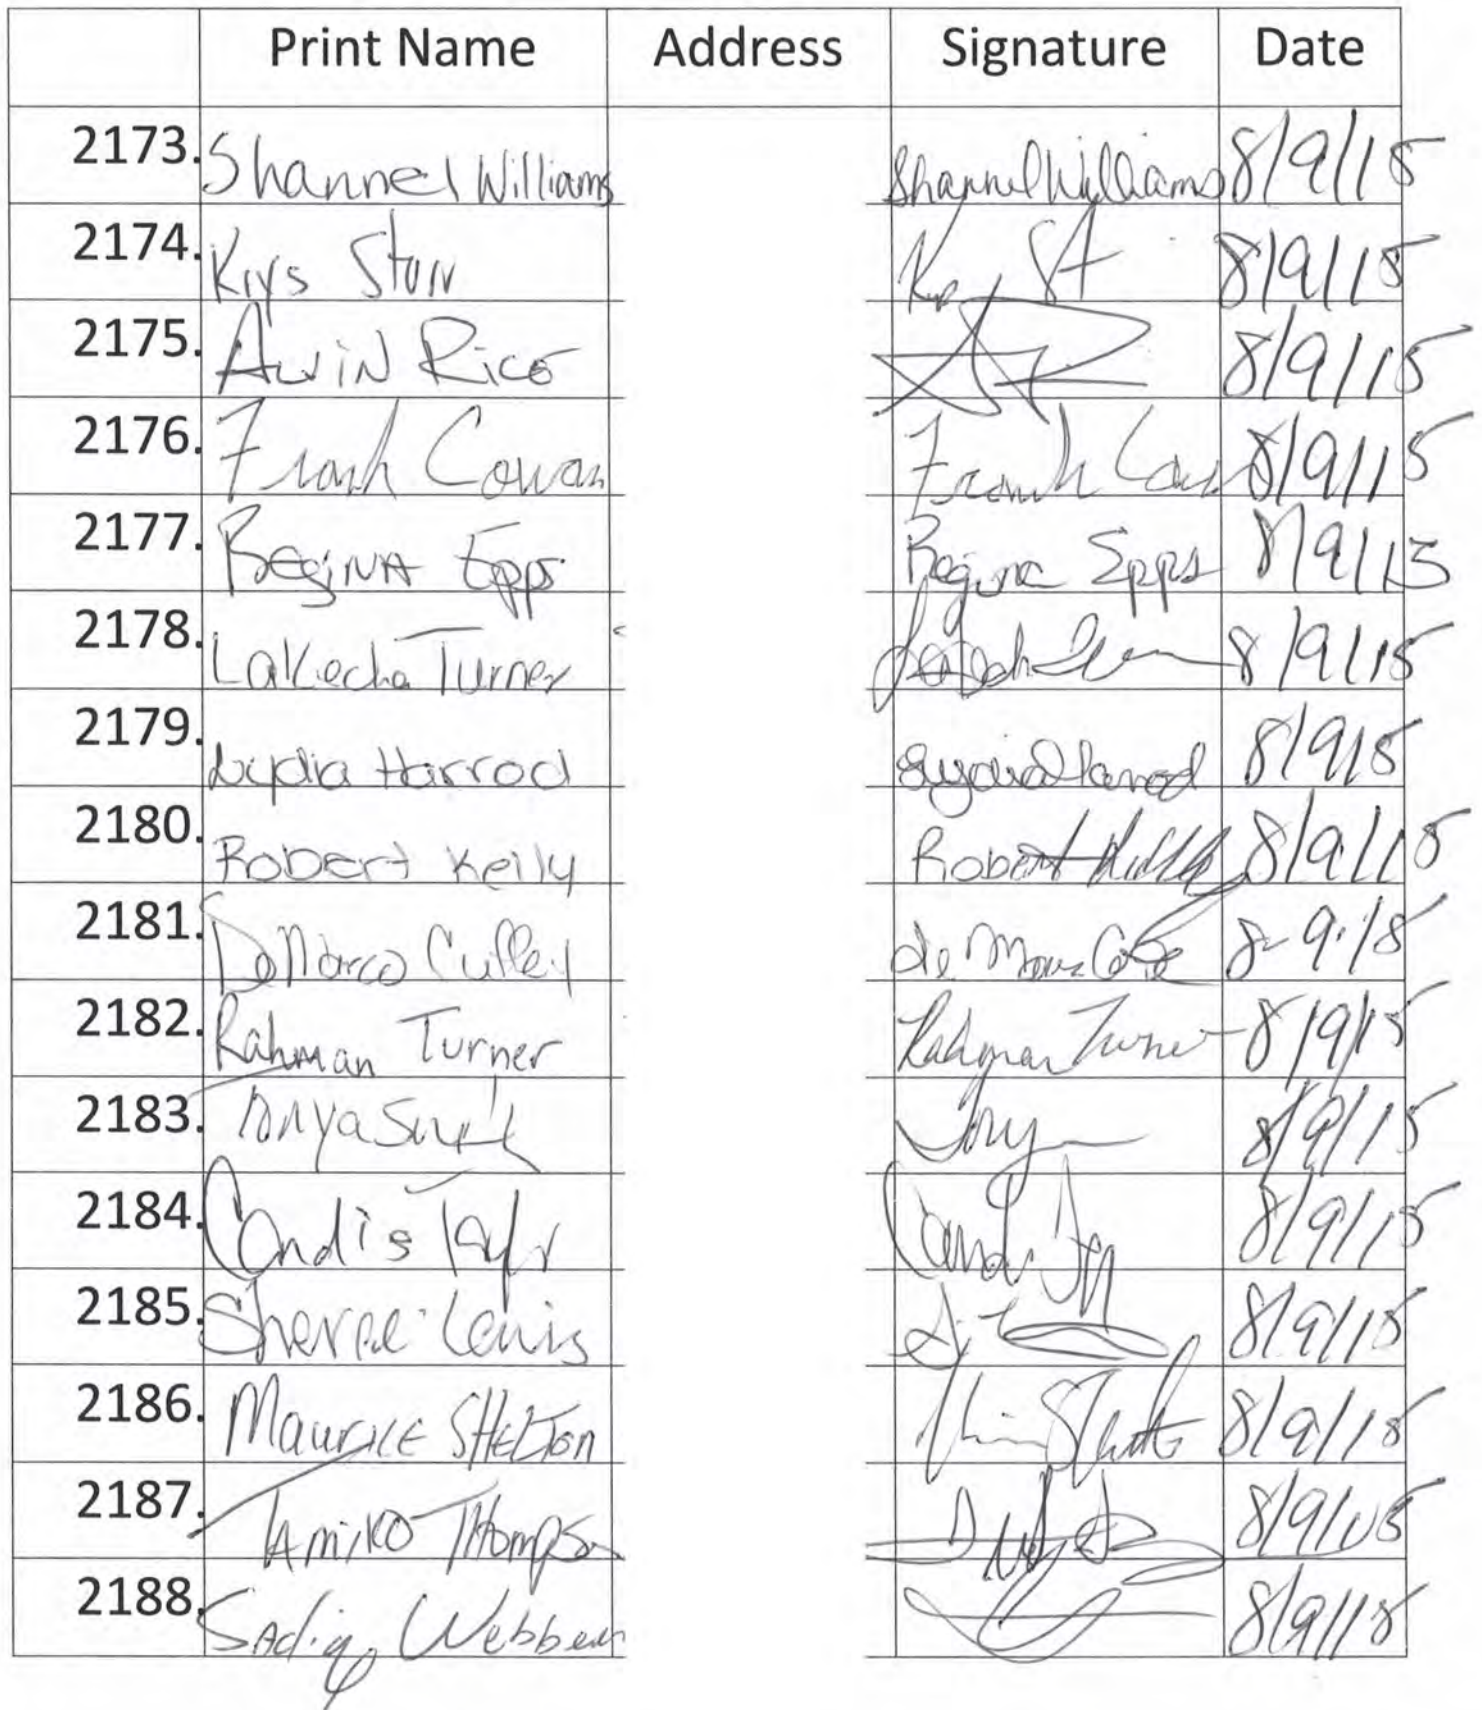 Print Name Address Signature Date
2173. Shannel Williams Shannel Williams 8/9/15
2174. Krys Starr 8/9/15
2175. Alvin Rice 8/9/15
2176. Frank Cowan Frank 8/9/15
2177. Regina Epps Regina Epps 8/9/15
2178. LaKecha Turner 8/9/15
2179. Lydia Harrod Lydia Harrod 8/9/15
2180. Robert Kelly Robert 8/9/15
2181. DeMarco Cuffey 8-9-15
2182. Rahman Turner Rahman Turner 8/9/15
2183. Tonya 8/9/15
2184. Candis Taylor 8/9/15
2185. Sheree Lewis 8/9/15
2186. Maurice SHELTON 8/9/15
2187. TAMIKO THOMPSON 8/9/15
2188. Sadiq Webber 8/9/15